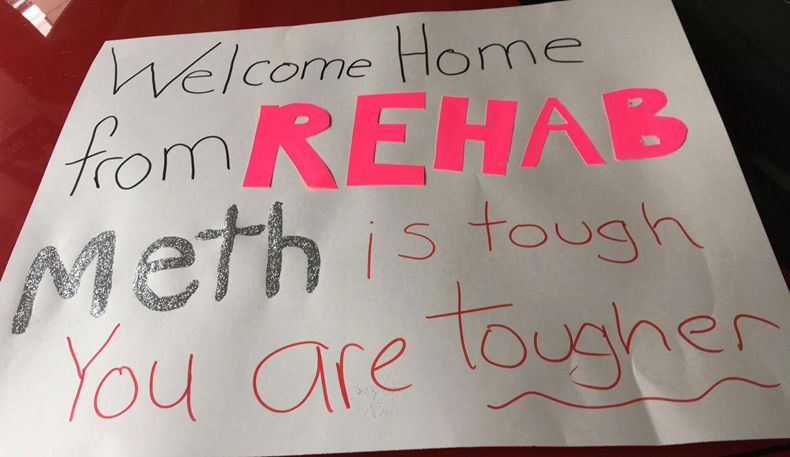 Welcome Home
from REHAB
Meth is tough
You are tougher